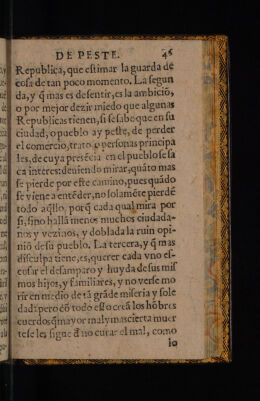 DE PESTE. 46
Republica, que estimar la guarda de
cosa de tan poco momento. La segun
da, y q̃ mas es desentir, es la ambiciõ,
o por mejor dezir miedo que algunas
Republicas tienen, si se sabe que en su
ciudad, o pueblo ay peste, de perder
el comercio, trato, o personas principa
les, de cuya presẽcia en el pueblo se sa
ca interes: deuiendo mirar, quãto mas
se pierde por este camino, pues quãdo
se viene a entẽder, no solamẽte pierdẽ
todo aq̃llo, porq̃ cada qual mira por
si, sino hallã menos muchos ciudada-
nos y vezinos, y doblada la ruin opi-
niõ de su pueblo. La tercera, y q̃ mas
disculpa tiene, es, querer cada vno es-
cusar el desamparo y huyda de sus mis
mos hijos, y familiares, y no verse mo
rir en medio de tã grãde miseria y sole
dad: pero cõ todo esso creã los hõbres
cuerdos q̃ mayor mal y mas cierta muer
te se les sigue d̃ no curar el mal, como
lo